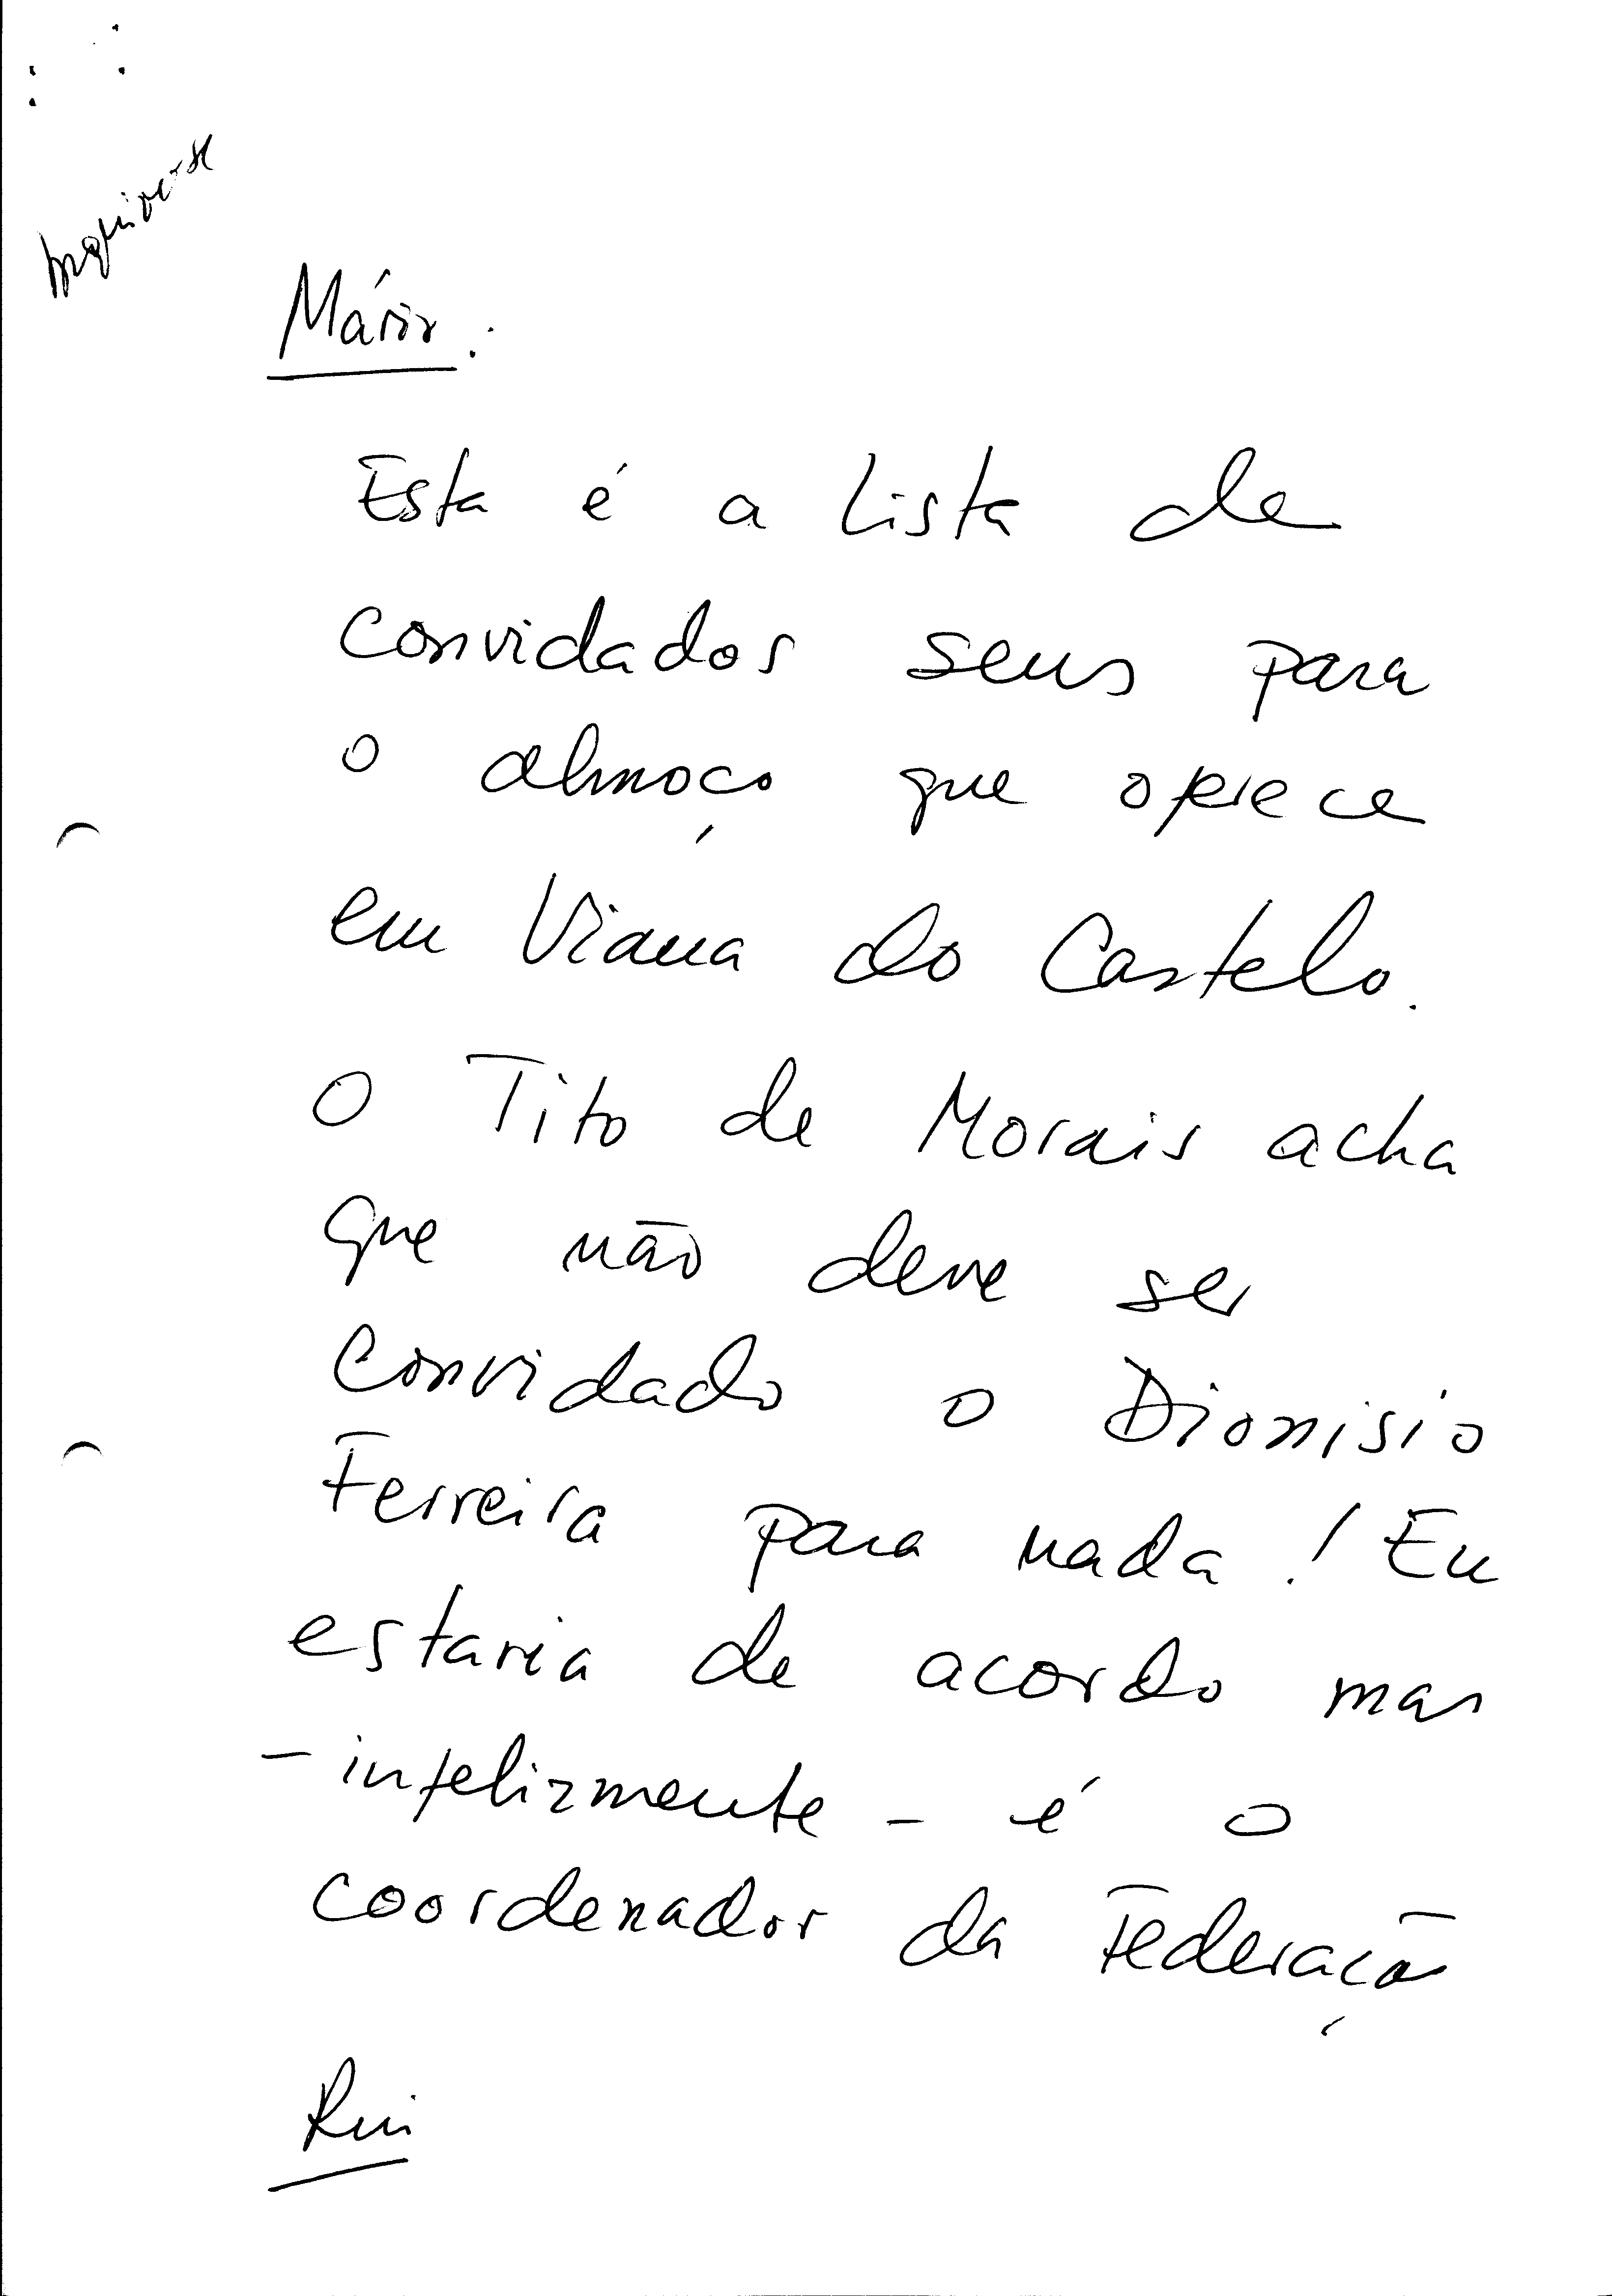 Arquive-se
Mário:
Esta é a lista de
convidados seus para
o almoço que oferece
em Viana do Castelo.
O Tito de Morais acha
que não deve ser
convidado o Dionisio
Ferreira para nada! Eu
estaria de acordo mas
- infelizmente - é o
coordenador da Federação
Rui